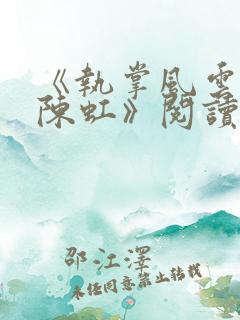 《執掌風雲
陳虹》閱讀
邵江澤
未經同意禁止轉載